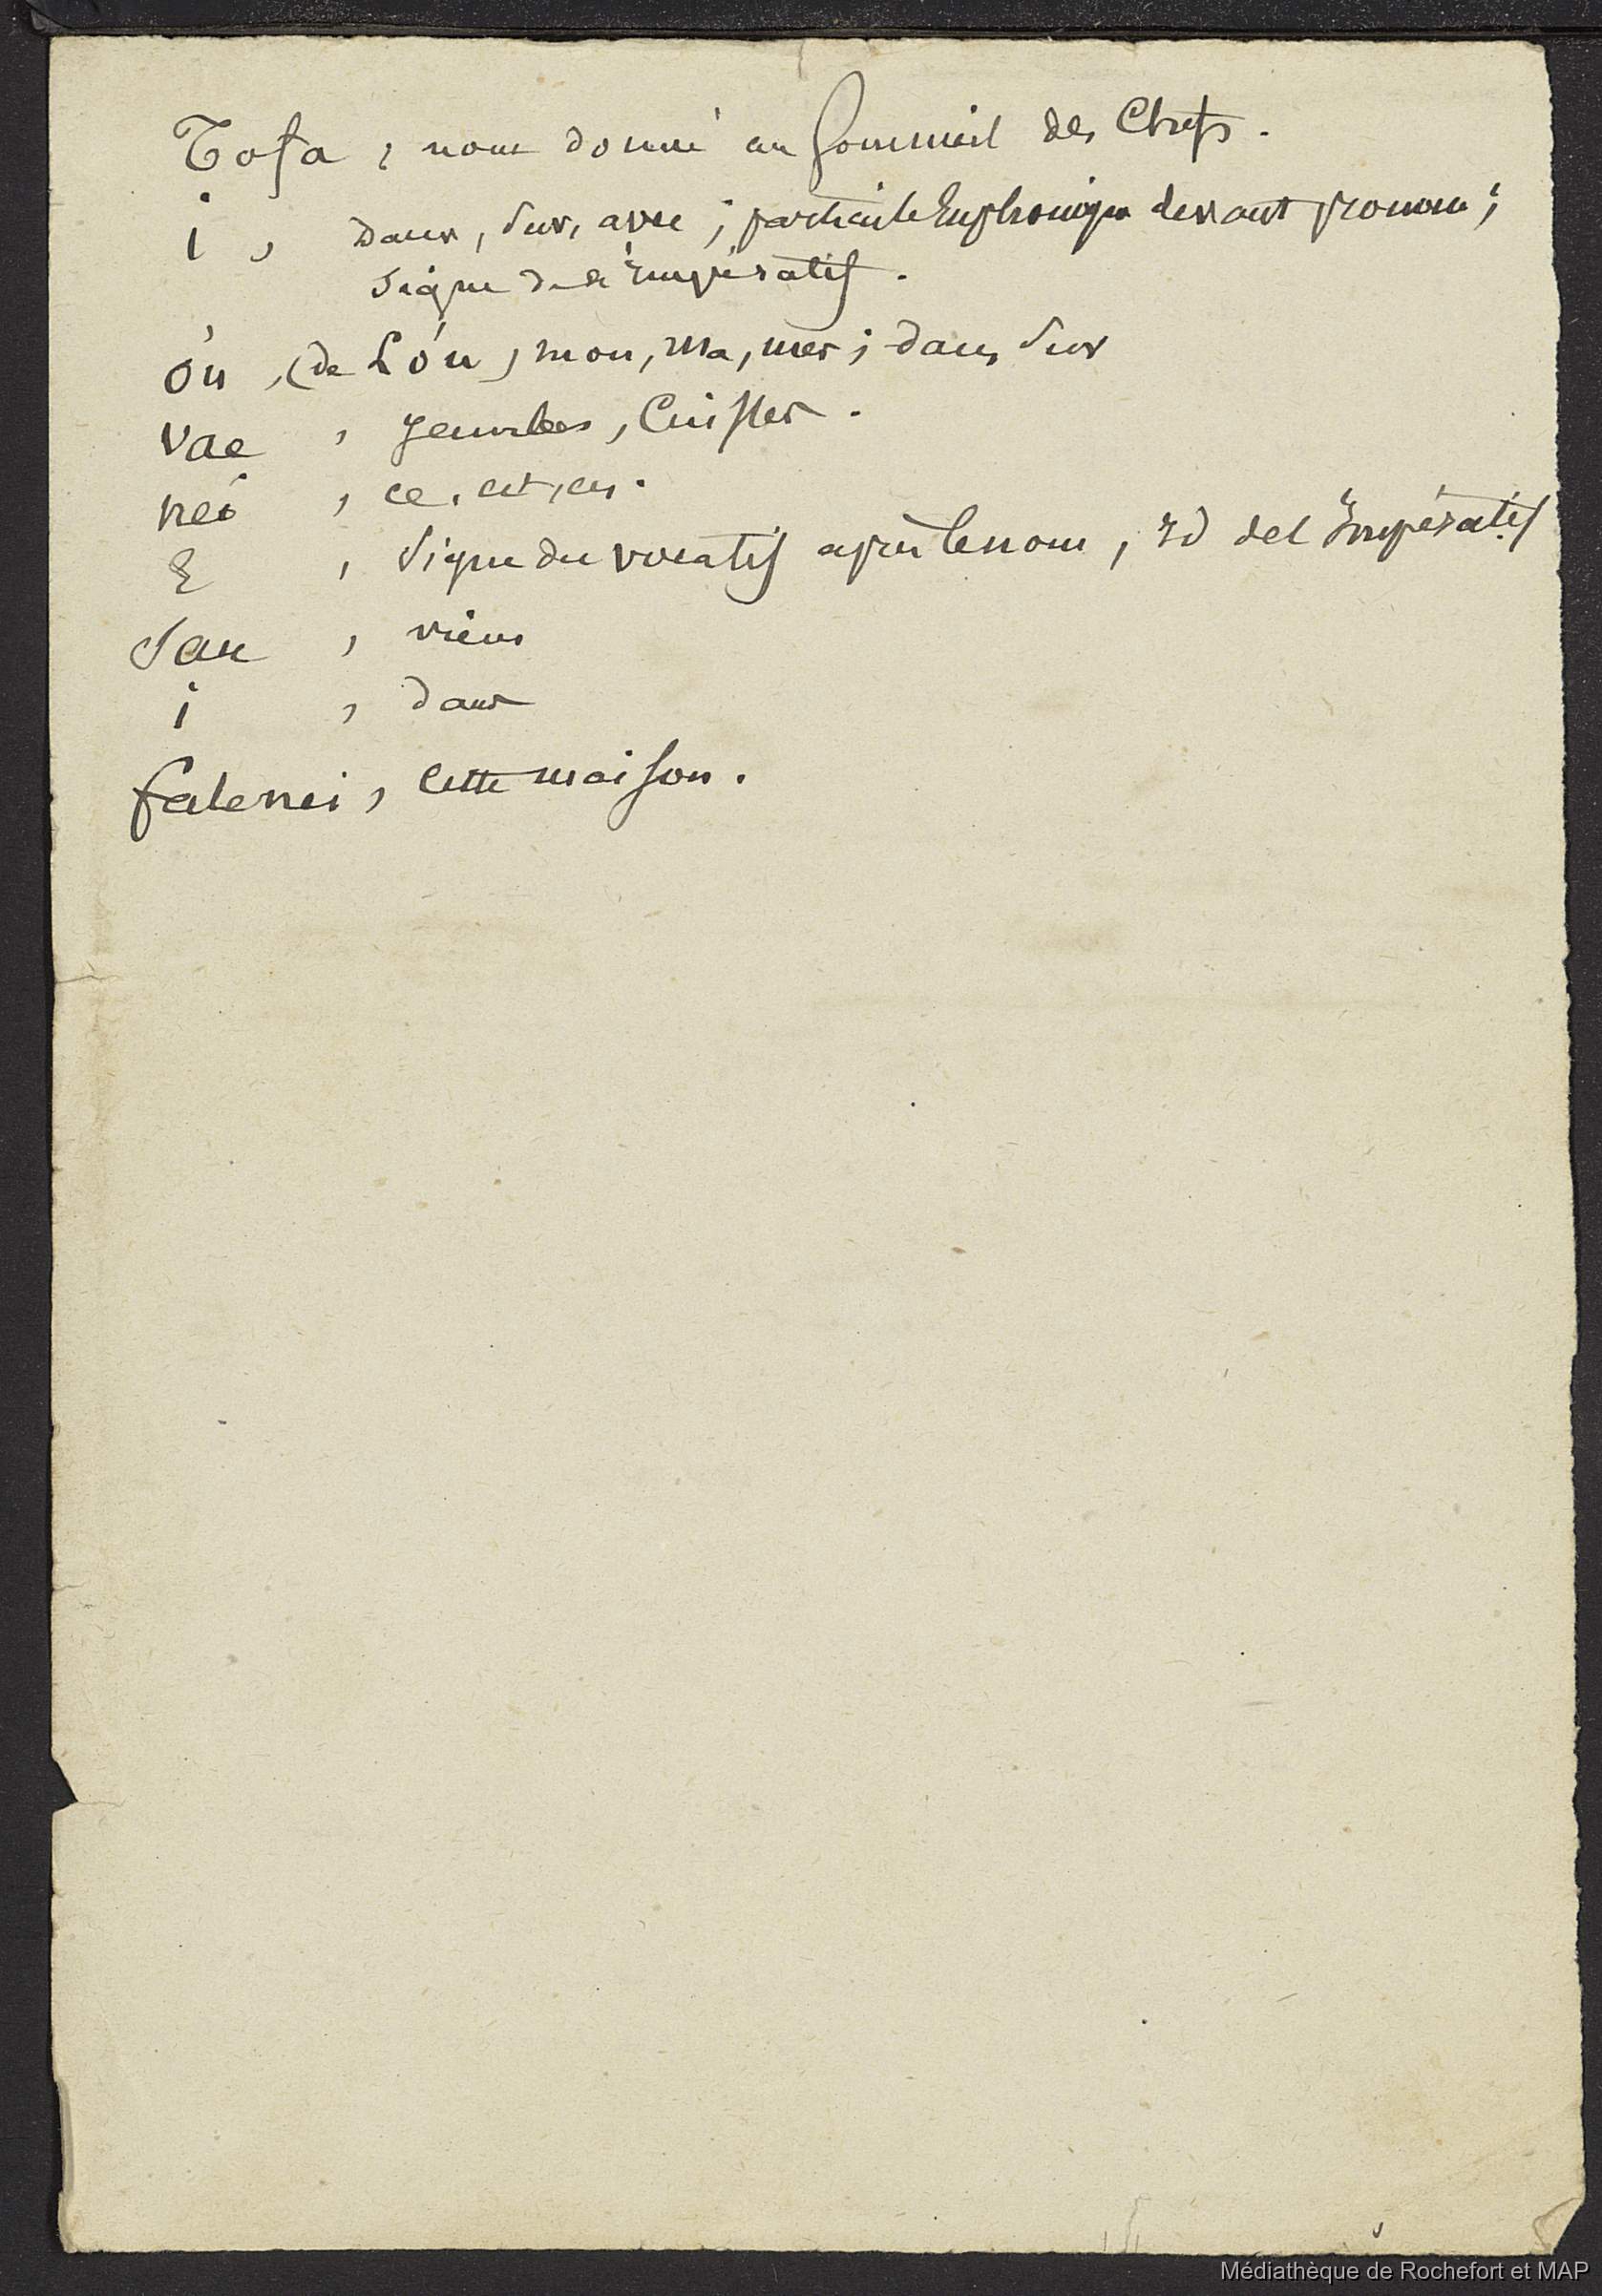 Tofa, nom donné au Sommeil des Chefs.
i, Dans, Sur, avec ; particule Euphonique devant pronom ;
Signe de l'Impératif.
óu, (de Lóu) mon, ma, mes ; dans, Sur
vae, jambes, Cuisses.
nei, ce, cet, ces.
E, Signe du vocatif après le nom, id de l'Impératif
Sau, viens
i, dans
fale nei, cette maison.
Médiathèque de Rochefort et MAP